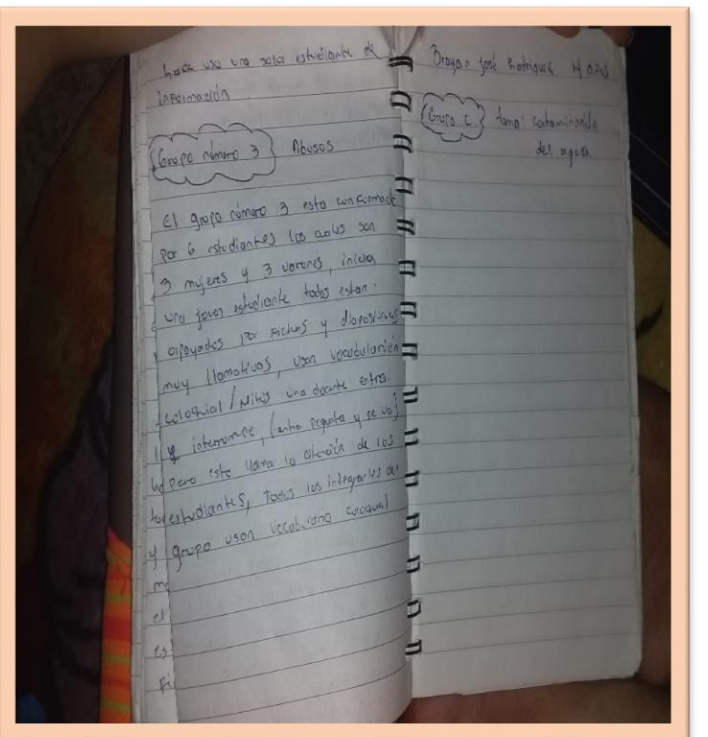 hace uso una sola estudiante de
información
Grupo número 3 Abusos
El grupo número 3 esta conformado
por 6 estudiantes los cuales son
3 mujeres y 3 varones, inicia
una joven estudiante todos estan
apoyados por fichas y diapositivas
muy llamativas, usan vocabulario
coloquial / una docente entra
interrumpe, (entra pregunta y se va)
pero esto llama la atención de los
estudiantes, Todos los integrantes del
grupo usan vocabulario coloquial
y
m
el
es
fi
Brayan José Rodriguez
Grupo tema: contaminación
del agua